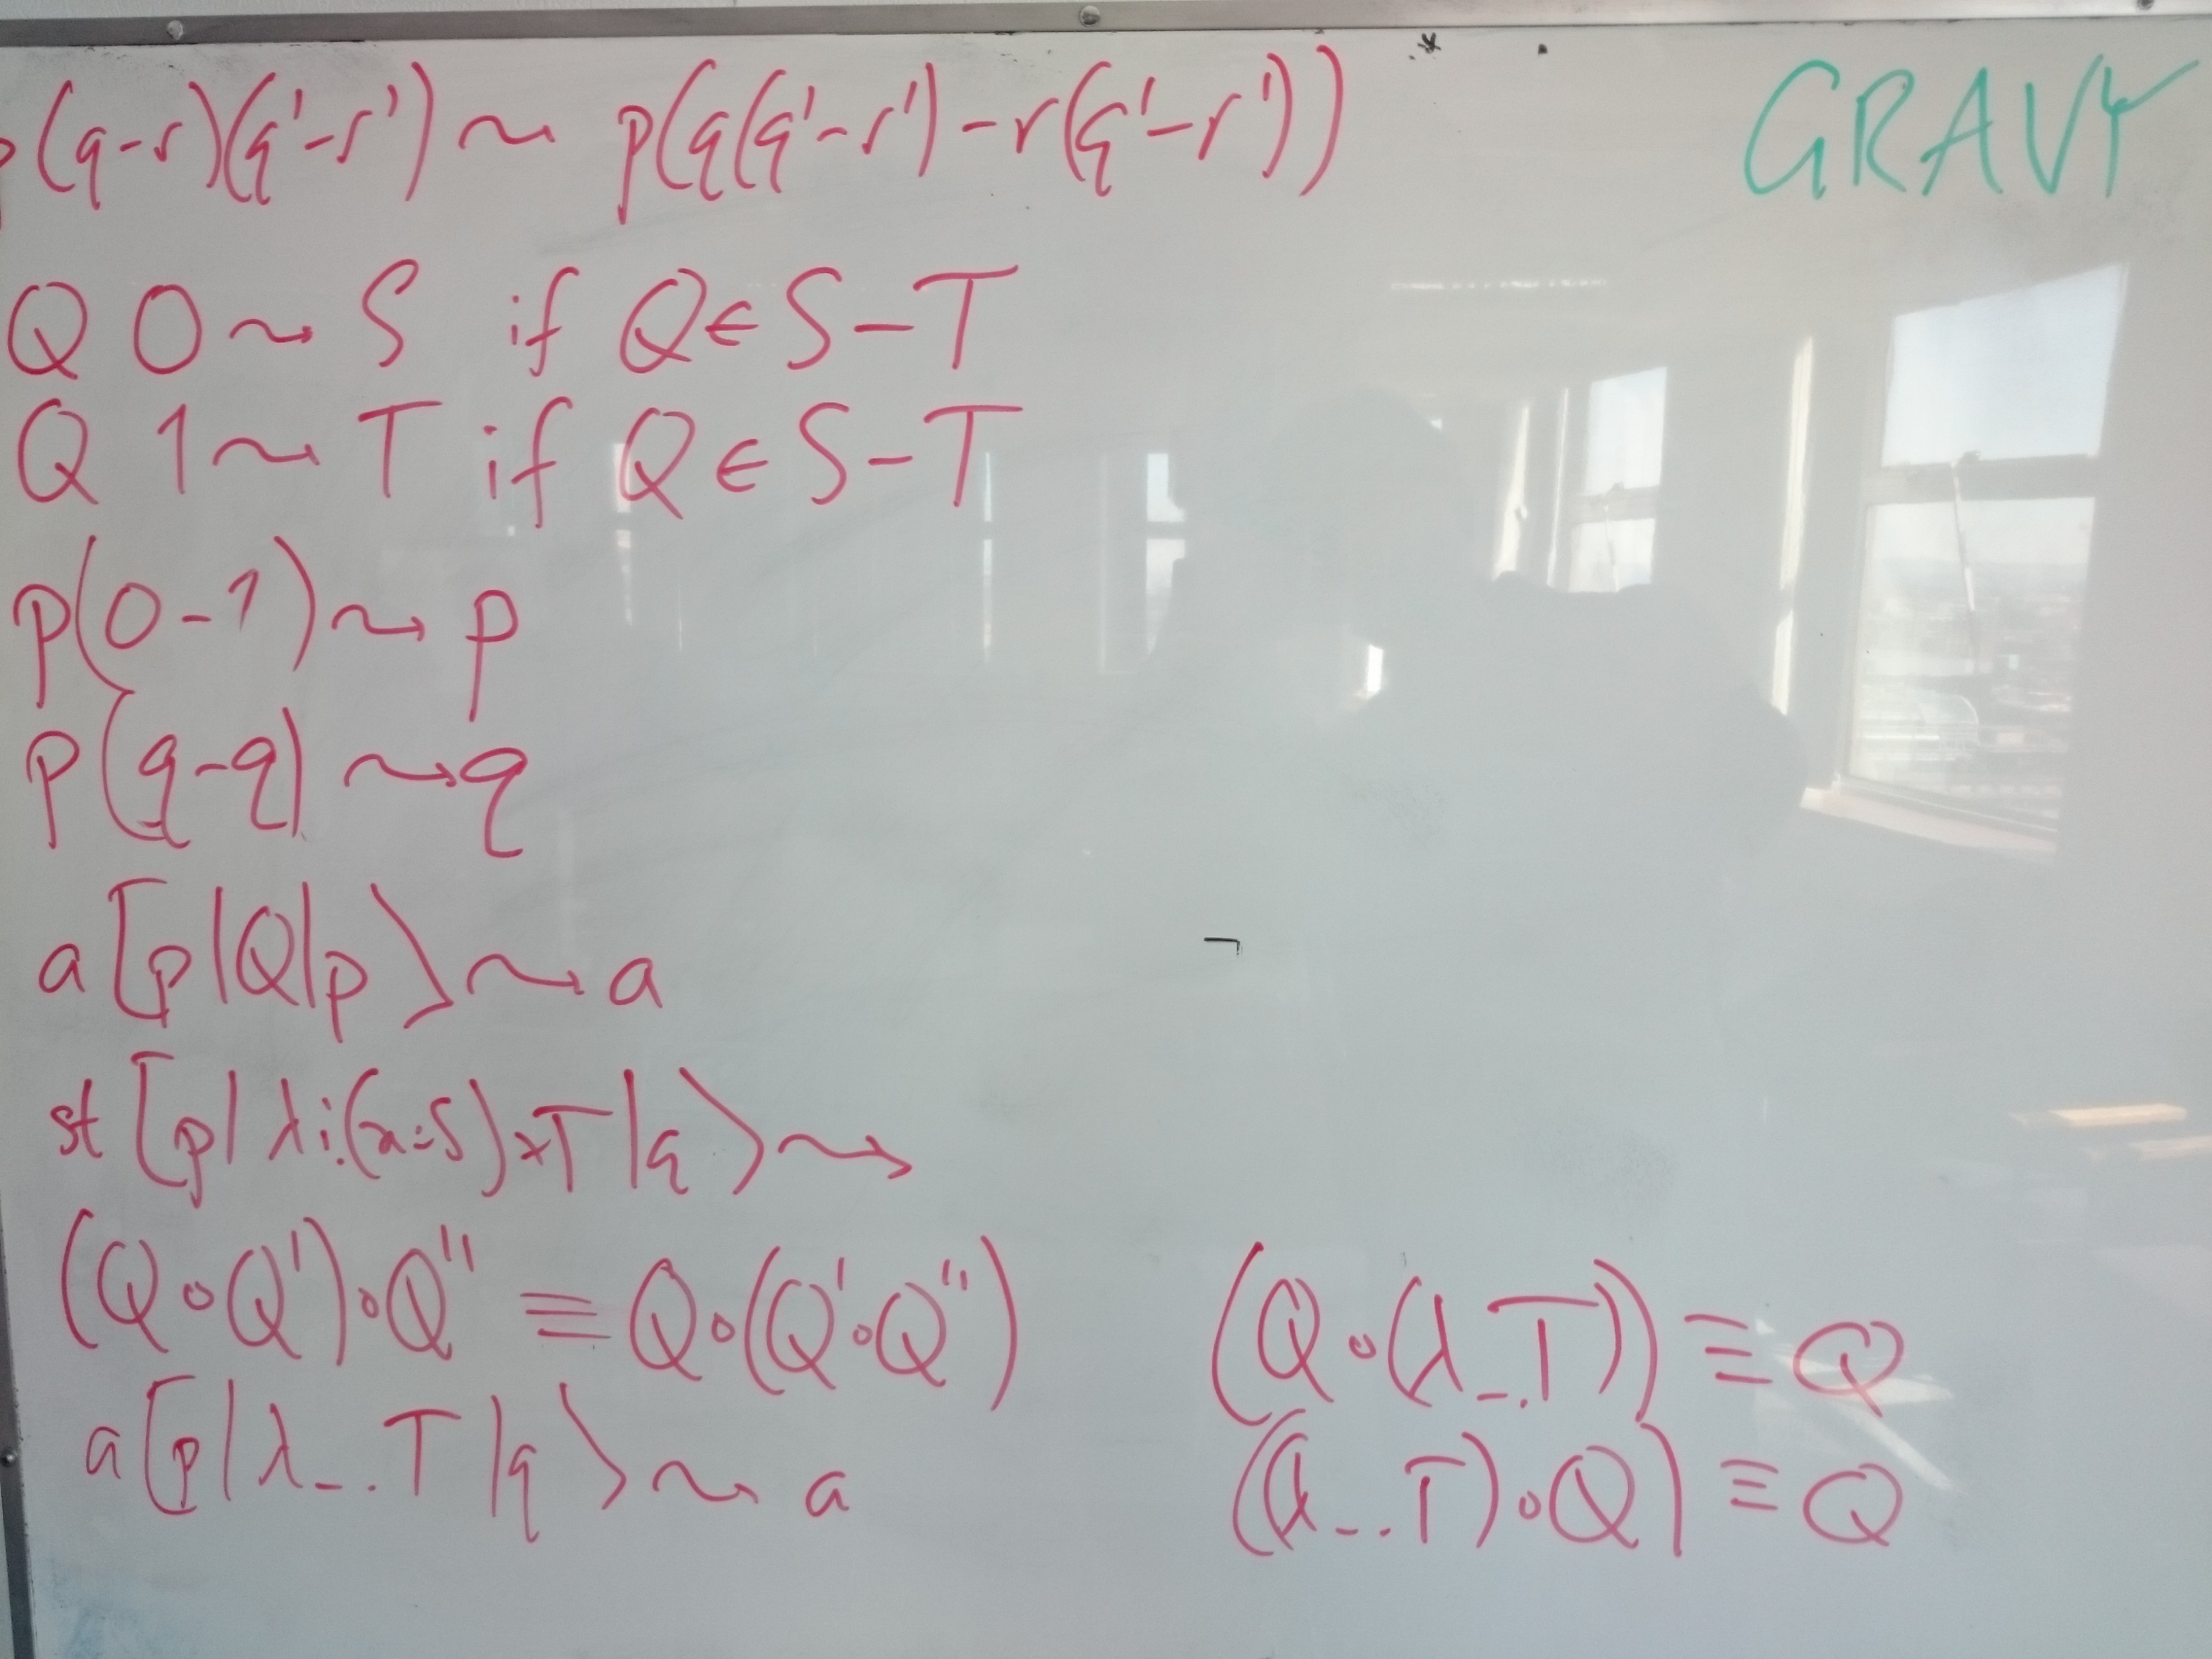 p(q-r)(q'-r') ⇝ p(q(q'-r')-r(q'-r'))
GRAVY
Q 0 ⇝ S if Q∈S-T
Q 1 ⇝ T if Q∈S-T
p(0-1) ⇝ p
p(q-q) ⇝ q
a[p|Q|p⟩ ⇝ a
st[p|λi.(x:S)×T|q⟩ ⇝
(Q∘Q')∘Q'' ≡ Q∘(Q'∘Q'')
(Q∘(λ_.T)) ≡ Q
a[p|λ_.T|q⟩ ⇝ a
((λ_.T)∘Q) ≡ Q